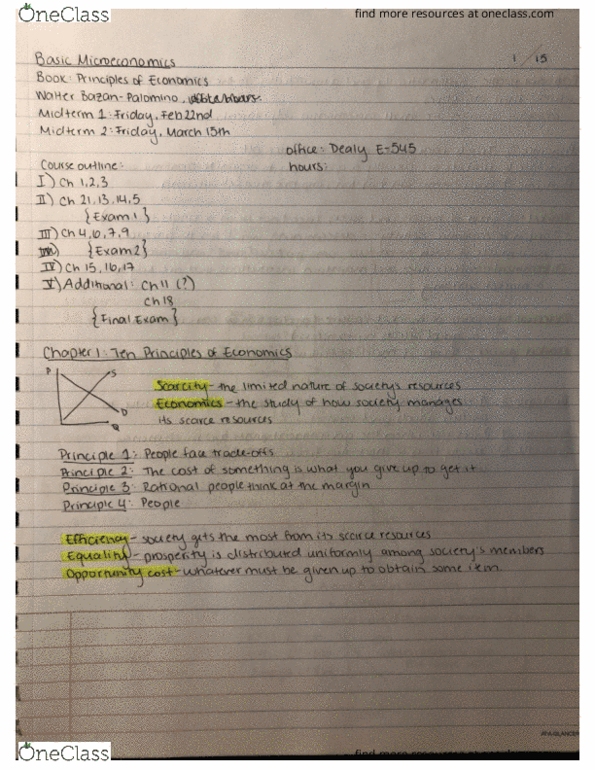 OneClass
find more resources at oneclass.com
Basic Microeconomics
1/15
Book: Principles of Economics
Walter Bazan-Palomino,
Midterm 1: Friday, Feb 22nd
Midterm 2: Friday, March 15th
office: Dealy E-545
Course outline:
hours:
I) Ch 1,2,3
II) Ch 21,13,14,5
{Exam 1}
III) Ch 4,6,7,9
{Exam 2}
IV) Ch 15,16,17
V) Additional: Ch 11 (?)
Ch 18
{Final Exam}
Chapter 1: Ten Principles of Economics
P
S
D
Q
Scarcity - the limited nature of society's resources
Economics - the study of how society manages
its scarce resources
Principle 1: People face trade-offs
Principle 2: The cost of something is what you give up to get it
Principle 3: Rational people think at the margin
Principle 4: People
Efficiency - society gets the most from its scarce resources
Equality - prosperity is distributed uniformly among society's members
Opportunity cost - whatever must be given up to obtain some item.
OneClass
find more resources at oneclass.com